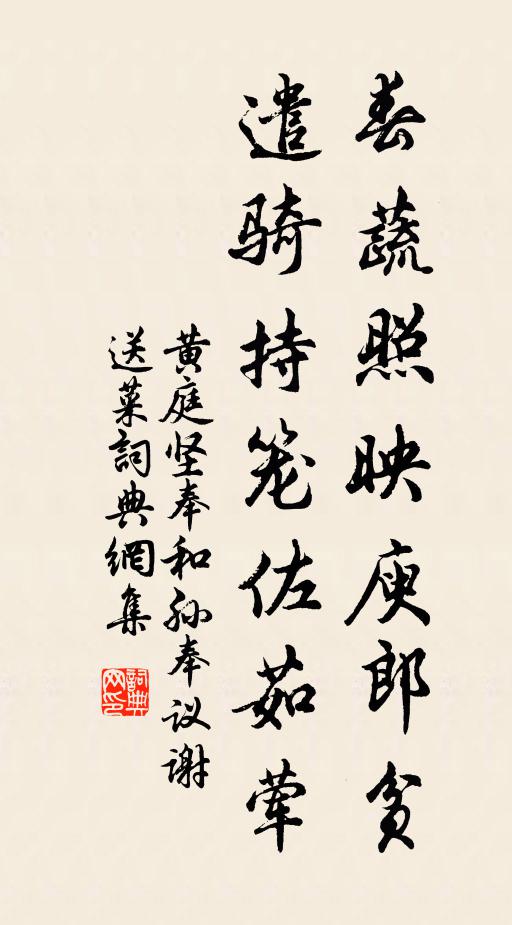 春蔬照映庾郎贫
遣骑持笼佐茹荤
黄庭坚奉和孙奉议谢
送菜詞典網集
詞典网印